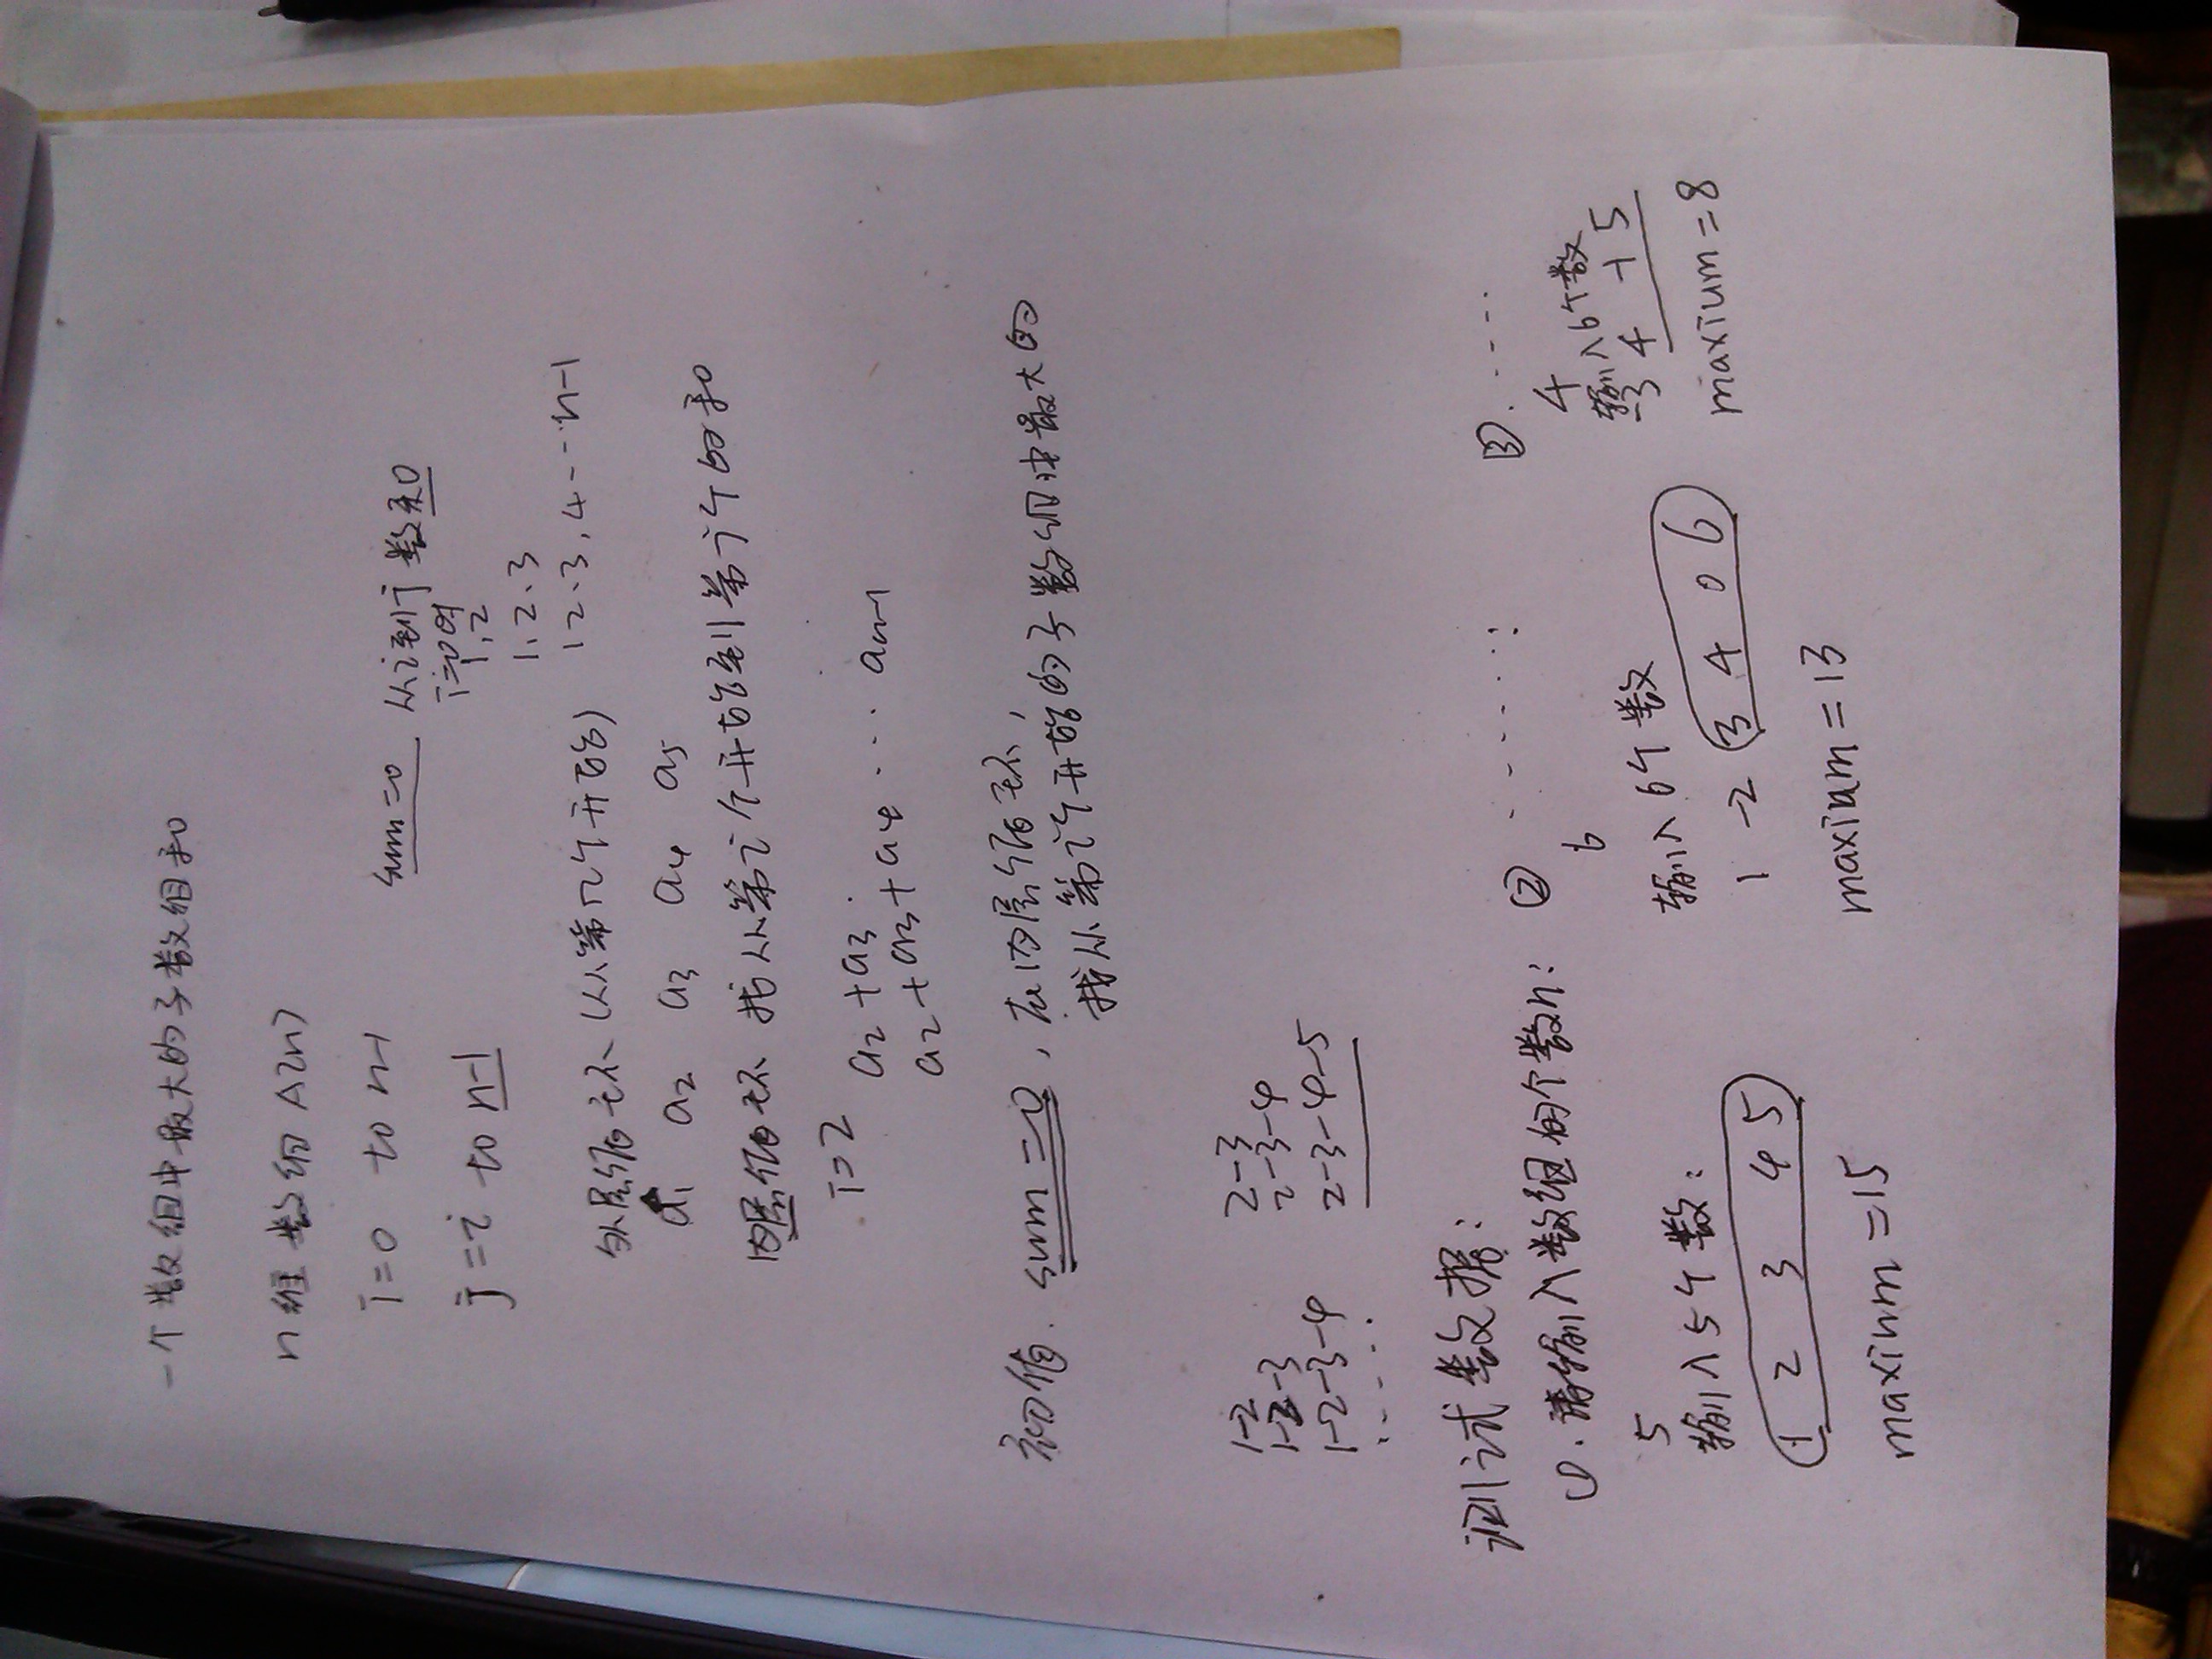 一个数组中最大的子数组和
n维数组A[n]
i=0 to n-1
sum=0 从i到j数和
j=i to n-1
i=0时
1,2
1,2,3
1,2,3,4---n-1
外层循环(从第几个开始)
a1 a2 a3 a4 a5
内层循环 找从第i个开始到第j个的和
i=2
a2+a3
a2+a3+a4 ... an-1
初值. sum=0, 在内层循环,
找从第i个开始的子数组中最大的
1-2
1-2-3
1-2-3-4
2-3
2-3-4
2-3-4-5
测试数据:
①.请输入数组的个数n:
5
输入5个数:
1 2 3 4 5
maximum=15
②
6
输入6个数
1 -2 3 4 0 6
maxium=13
③
4
输入6个数
-3 4 -1 5
maxium=8